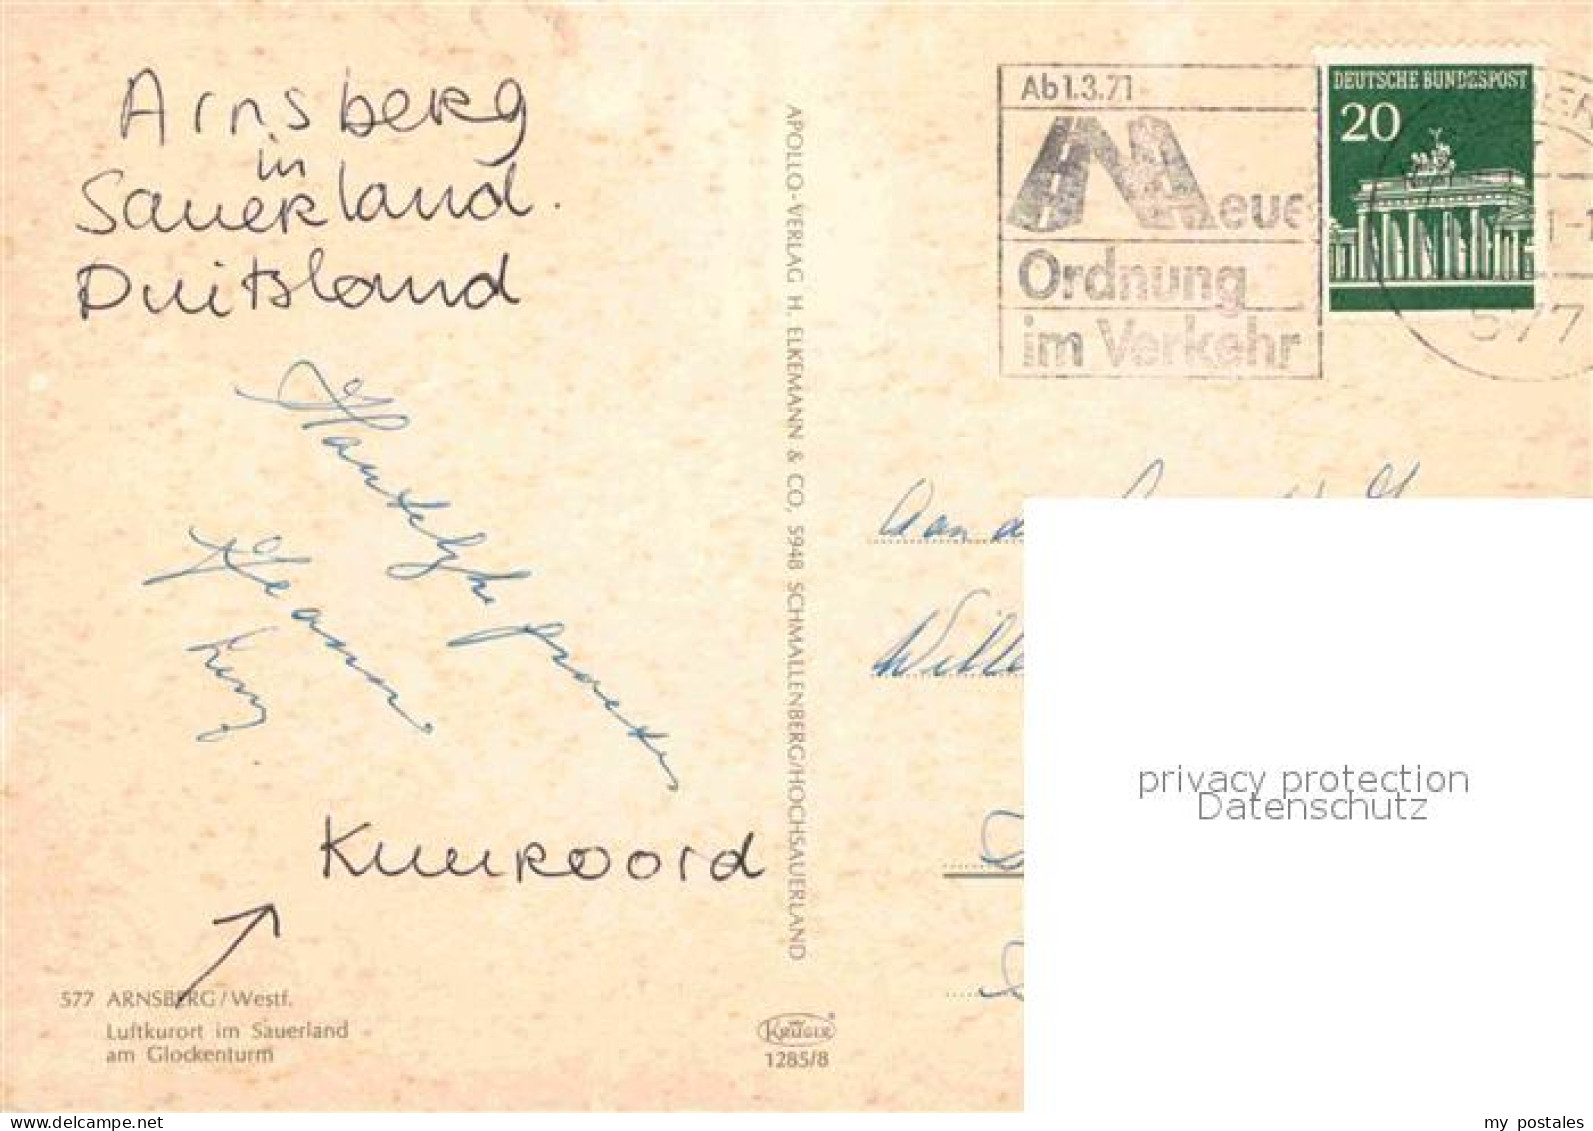 Arnsberg
in
Sauerland.
Duitsland
Hartelijke groeten
Kuuroord
577 ARNSBERG/Westf.
Luftkurort im Sauerland
am Glockenturm
APOLLO-VERLAG H. ELKEMANN & CO, 5948 SCHMALLENBERG/HOCHSAUERLAND
KRÜGER
1285/8
Ab 1.3.71
Neue
Ordnung
im Verkehr
DEUTSCHE BUNDESPOST
20
577
Aan de
privacy protection
Datenschutz
delcampe.net
my_postales